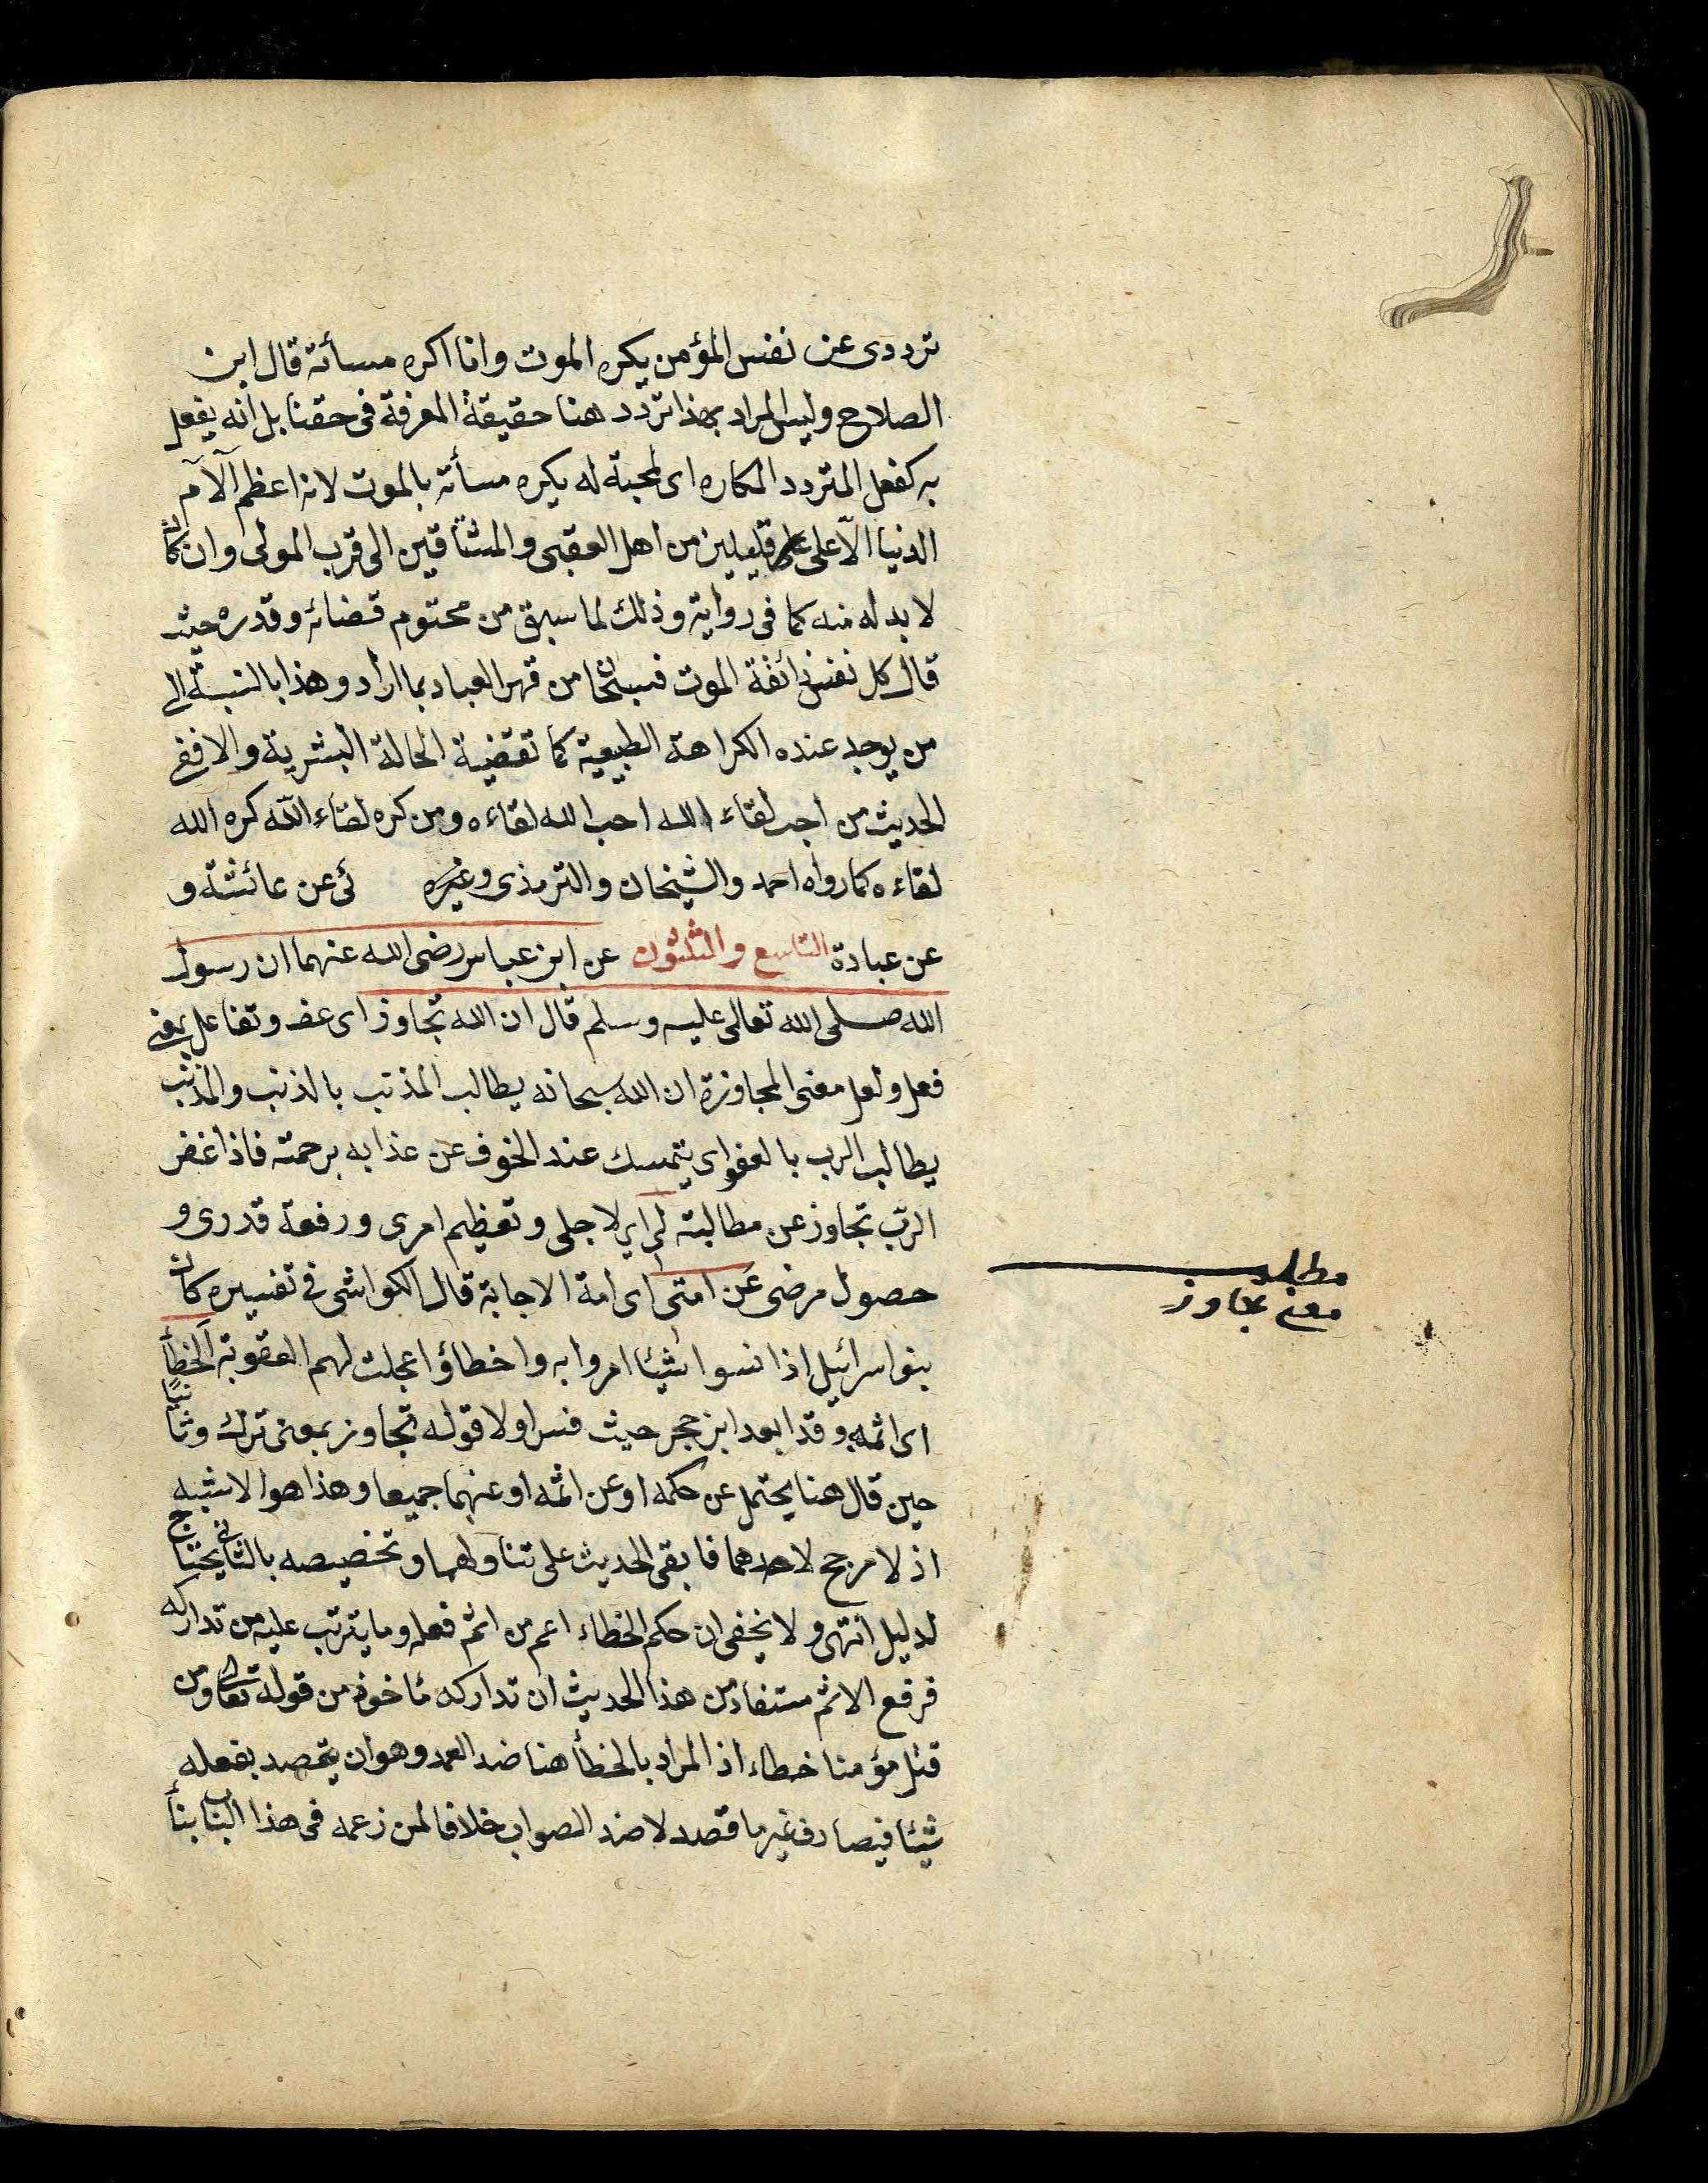 ترددى عن نفس المؤمن يكره الموت وانا اكره مسأته قال ابن
الصلاح وليس المراد بهذا تردد هنا حقيقة المعرفة فى حقنا بل انه يفعل
به كفعل المتردد المكاره اى لمحبته له يكره مسأته بالموت لانه اعظم آلآم
الدنيا الّا على قليلين من اهل العقبى والمشتاقين الى قرب المولى وان كان
لا بد له منه كما فى رواية وذلك لما سبق من محتوم قضائه وقدره حيث
قال كل نفس ذائقة الموت فسبحان من قهر العباد بما اراد وهذا بالنسبة الى
من يوجد عنده الكراهة الطبيعية كما تقتضية الحالة البشرية والا ففى
الحديث من احب لقاء الله احب الله لقاءه ومن كره لقاء الله كره الله
لقاءه كما رواه احمد والشيخان والترمذى وغيره ئى عن عائشة و
عن عبادة التاسع والثلثون عن ابن عباس رضى الله عنهما ان رسول
الله صلى الله تعالى عليه وسلم قال ان الله تجاوز اى عفى وتفاعل بمعنى
فعل ولعل معنى المجاوزة ان الله سبحانه يطالب المذنب بالذنب والمذنب
يطالب الرب بالعفو اى يتمسك عند الخوف عن عذابه برحمته فاذا غفر
الربّ تجاوز عن مطالبته لى اى لاجلى وتعظيم امرى ورفعة قدرى و
حصول مرضى عن امتى اى امة الاجابة قال الكواشى فى تفسيره كان
بنو اسرائيل اذا نسوا شيئا امروا به واخطاؤا عجلت لهم العقوبة الخطأ
اى اثمه وقد ابعد ابن حجر حيث فسر اولا قوله تجاوز بمعنى ترك وثانيًا
حين قال هنا يحتمل عن حكمه او عن اثمه او عنهما جميعا وهذا هو الاشبه
اذ لا مرجح لاحدهما فابقى الحديث على تناولهما وتخصيصه بالثانى يحتاج
لدليل انتهى ولا يخفى ان حكم الخطاء اعم من اثم فعله وما يترتب عليه من تداركه
فرفع الاثم مستفاد من هذا الحديث ان تداركه مأخوذ من قوله تعالى ومن
قتل مؤمنا خطاء اذ المراد بالخطأ هنا ضد العمد وهو ان يقصد بفعله
شيئا فيصادف غير ما قصد لا ضد الصواب خلافا لمن زعمه فى هذا الباب بنأ
مطلب
معنى تجاوز